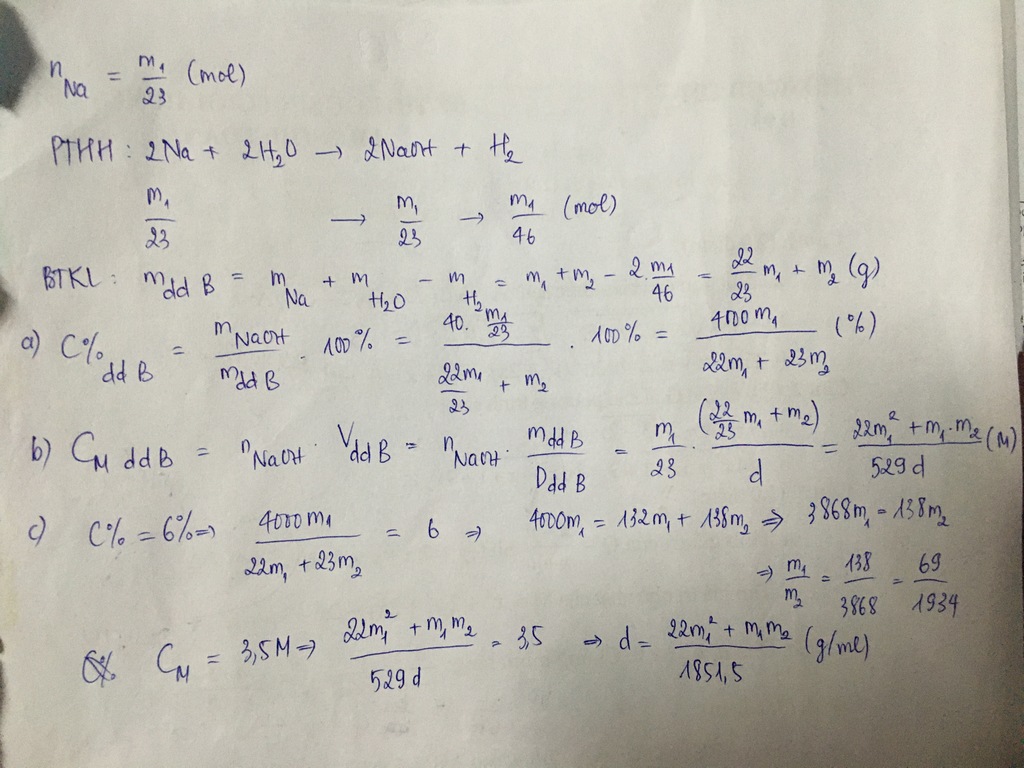 n_Na = m₁/23 (mol)
PTHH : 2Na + 2H₂O → 2NaOH + H₂
m₁/23 → m₁/23 → m₁/46 (mol)
BTKL : m_dd B = m_Na + m_H₂O - m_H₂ = m₁ + m₂ - 2.m₁/46 = 22/23 m₁ + m₂ (g)
a) C%_dd B = m_NaOH/m_dd B . 100% = (40. m₁/23)/(22m₁/23 + m₂) . 100% = 4000m₁/(22m₁ + 23m₂) (%)
b) C_M dd B = n_NaOH . V_dd B = n_NaOH . m_dd B/D_dd B = m₁/23 . (22/23 m₁ + m₂)/d = (22m₁² + m₁.m₂)/529d (M)
c) C% = 6% ⇒ 4000m₁/(22m₁ + 23m₂) = 6 ⇒ 4000m₁ = 132m₁ + 138m₂ ⇒ 3868m₁ = 138m₂
⇒ m₁/m₂ = 138/3868 = 69/1934
C_M = 3,5M ⇒ (22m₁² + m₁m₂)/529d = 3,5 ⇒ d = (22m₁² + m₁m₂)/1851,5 (g/ml)